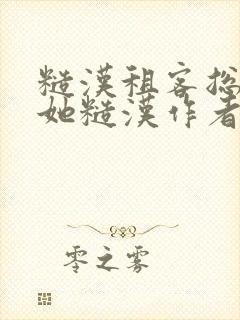 糙漢租客总
她糙漢作者
零之雾